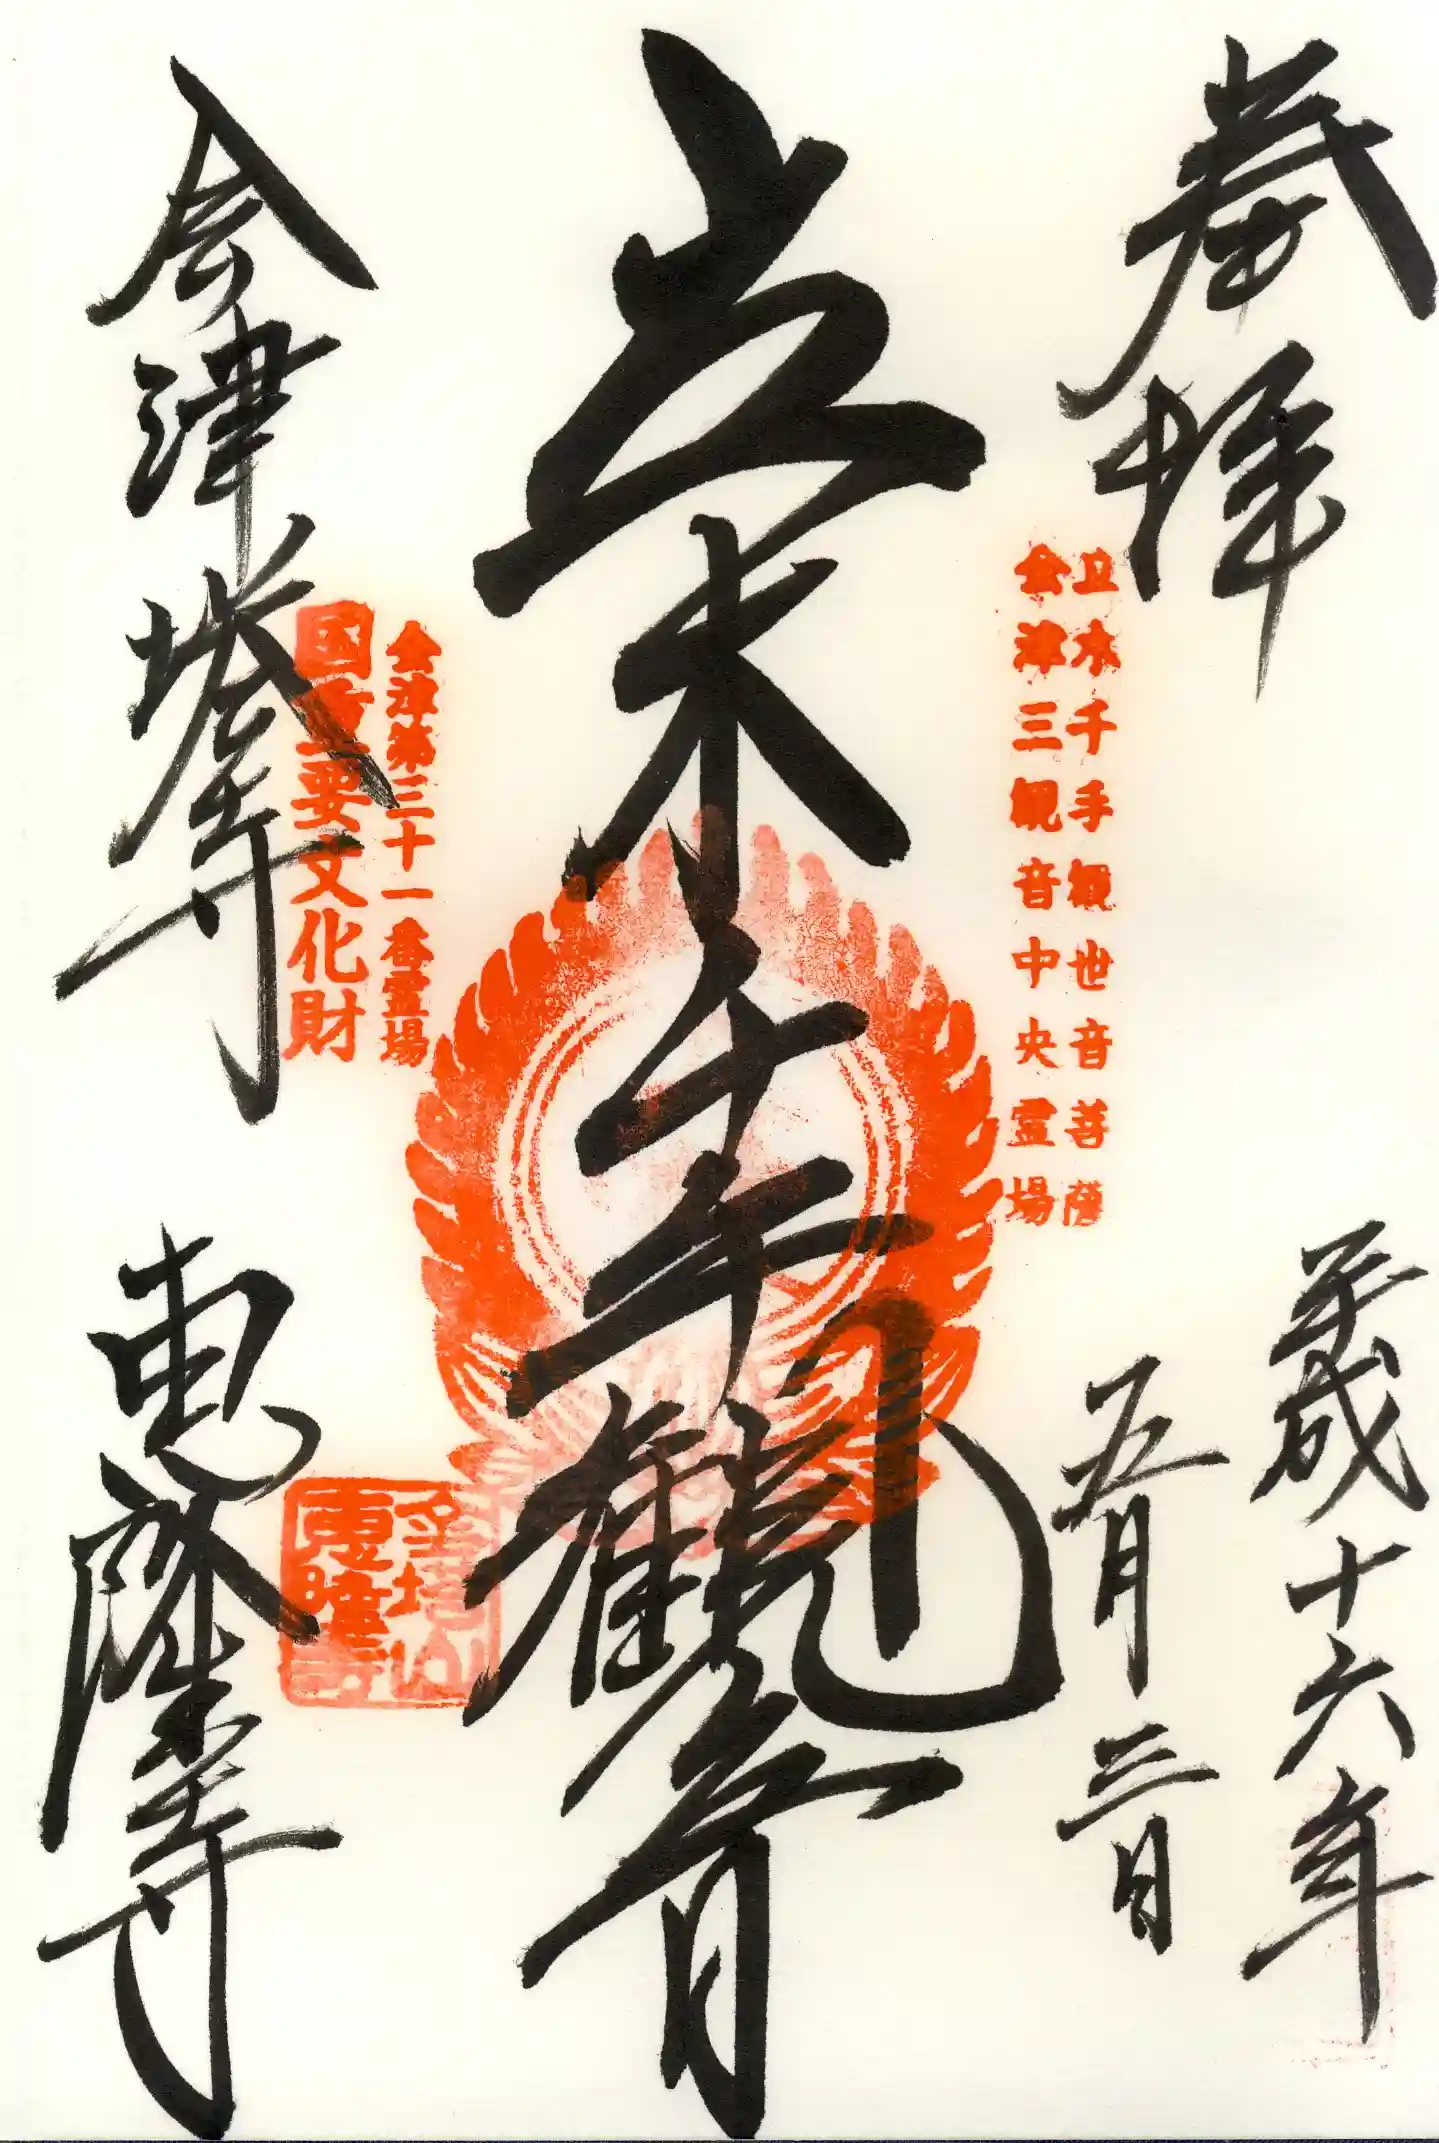 奉拝
平成十六年
五月三日
立木千手観世音菩薩
会津三観音中央霊場
立木千手観音
会津第三十一番霊場
国重要文化財
会津塔寺
恵隆寺
金塔山
恵隆寺